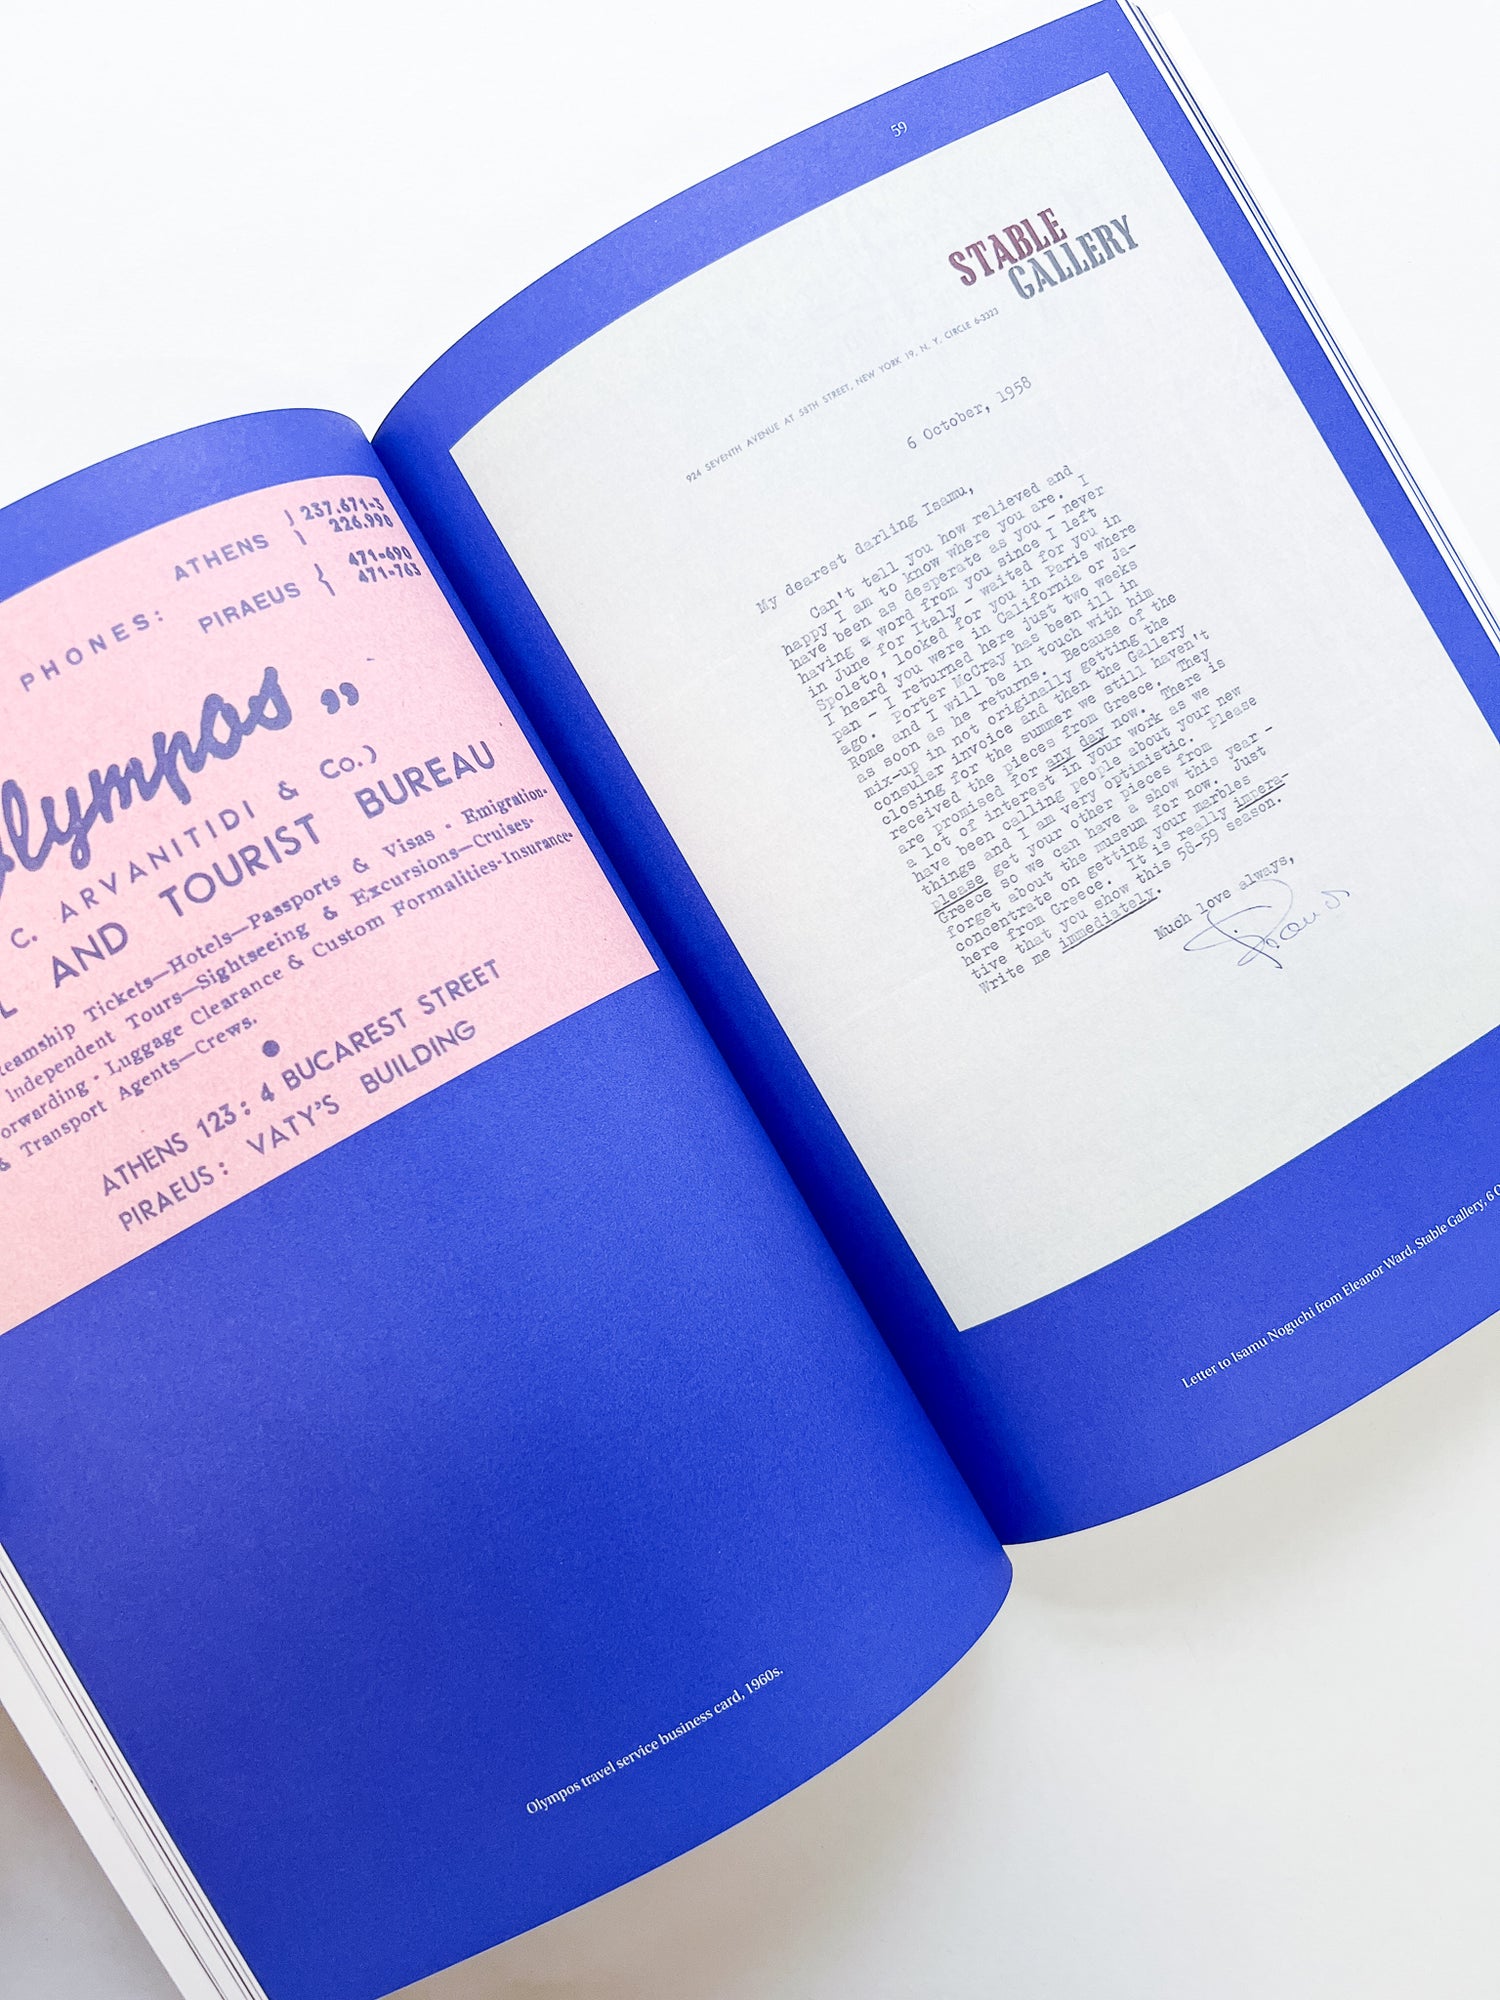 PHONES: ATHENS } 237.671-3
226.990
PIRAEUS { 471-690
471-763
lympos „
C. ARVANITIDI & Co.)
L AND TOURIST BUREAU
eamship Tickets—Hotels—Passports & Visas - Emigration-
Independent Tours—Sightseeing & Excursions—Cruises-
orwarding - Luggage Clearance & Custom Formalities-Insurance-
& Transport Agents—Crews.
ATHENS 123: 4 BUCAREST STREET
PIRAEUS: VATY'S BUILDING
Olympos travel service business card, 1960s.
59
STABLE
GALLERY
924 SEVENTH AVENUE AT 58TH STREET, NEW YORK 19, N. Y. CIRCLE 6-3323
6 October, 1958
My dearest darling Isamu,
Can't tell you how relieved and
happy I am to know where you are. I
have been as desperate as you - never
having a word from you since I left
in June for Italy - waited for you in
Spoleto, looked for you in Paris where
I heard you were in California or Ja-
pan - I returned here just two weeks
ago. Porter McCray has been ill in
Rome and I will be in touch with him
as soon as he returns. Because of the
mix-up in not originally getting the
consular invoice and then the Gallery
closing for the summer we still haven't
received the pieces from Greece. They
are promised for any day now. There is
a lot of interest in your work as we
have been calling people about your new
things and I am very optimistic. Please
please get your other pieces from
Greece so we can have a show this year -
forget about the museum for now. Just
concentrate on getting your marbles
here from Greece. It is really impera-
tive that you show this 58-59 season.
Write me immediately.
Much love always,
Letter to Isamu Noguchi from Eleanor Ward, Stable Gallery, 6 O